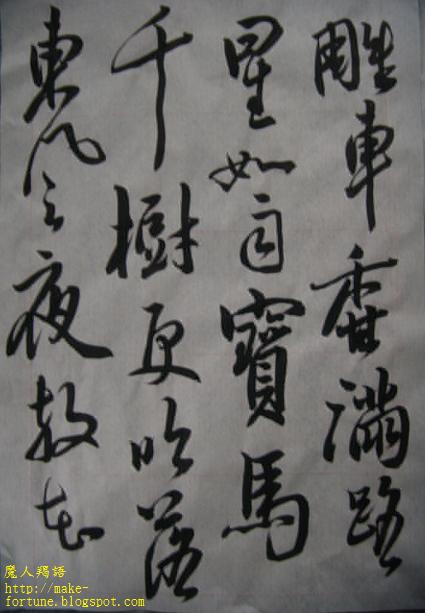 東風夜放花
千樹更吹落
星如雨寶馬
雕車香滿路
魔人羯語
http://make-
fortune.blogspot.com